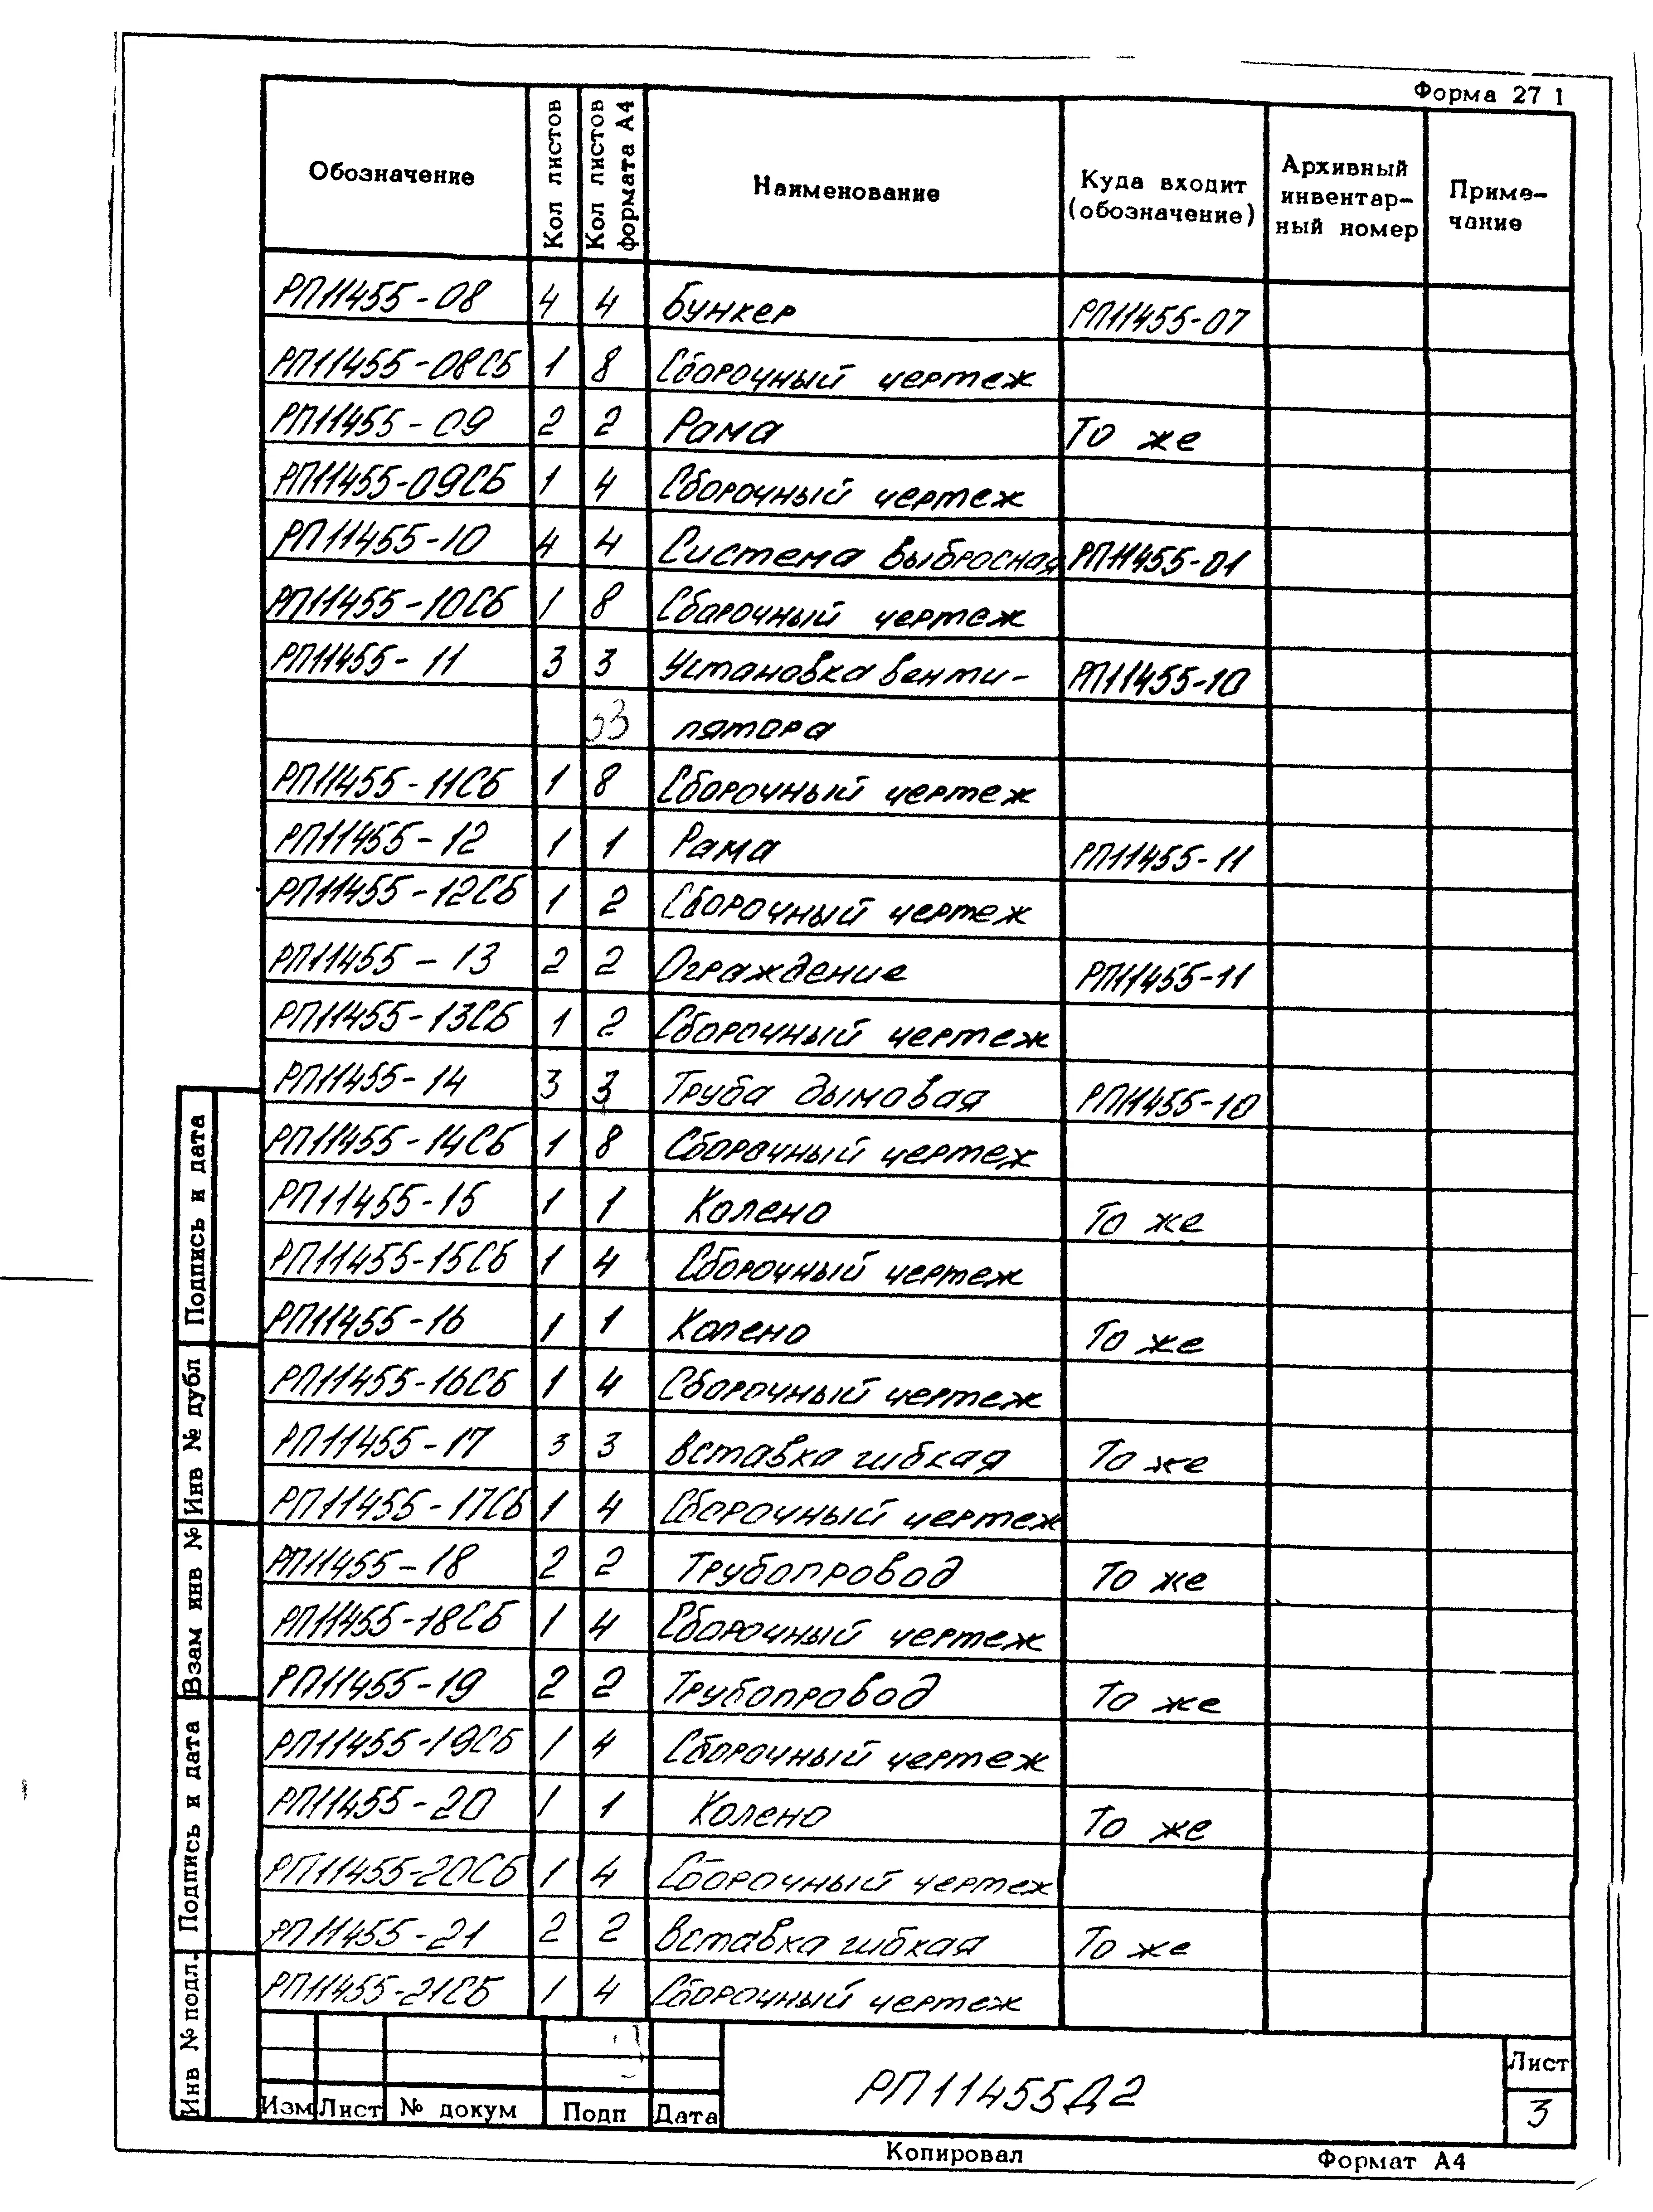 Форма 27 1
Обозначение
Кол листов
Кол листов формата А4
Наименование
Куда входит (обозначение)
Архивный инвентар- ный номер
Приме- чание
РП11455-08 4 4 Бункер РП11455-07
РП11455-08СБ 1 8 Сборочный чертеж
РП11455-09 2 2 Рама То же
РП11455-09СБ 1 4 Сборочный чертеж
РП11455-10 4 4 Система выбросная РП11455-01
РП11455-10СБ 1 8 Сборочный чертеж
РП11455-11 3 3 Установка венти- РП11455-10
33 лятора
РП11455-11СБ 1 8 Сборочный чертеж
РП11455-12 1 1 Рама РП11455-11
РП11455-12СБ 1 2 Сборочный чертеж
РП11455-13 2 2 Ограждение РП11455-11
РП11455-13СБ 1 2 Сборочный чертеж
РП11455-14 3 3 Труба дымовая РП11455-10
РП11455-14СБ 1 8 Сборочный чертеж
РП11455-15 1 1 Колено То же
РП11455-15СБ 1 4 Сборочный чертеж
РП11455-16 1 1 Колено То же
РП11455-16СБ 1 4 Сборочный чертеж
РП11455-17 3 3 Вставка гибкая То же
РП11455-17СБ 1 4 Сборочный чертеж
РП11455-18 2 2 Трубопровод То же
РП11455-18СБ 1 4 Сборочный чертеж
РП11455-19 2 2 Трубопровод То же
РП11455-19СБ 1 4 Сборочный чертеж
РП11455-20 1 1 Колено То же
РП11455-20СБ 1 4 Сборочный чертеж
РП11455-21 2 2 Вставка гибкая То же
РП11455-21СБ 1 4 Сборочный чертеж
Подпись и дата
Инв № дубл
Взам инв №
Подпись и дата
Инв № подл.
Изм Лист № докум Подп Дата
РП11455Д2
Лист
3
Копировал Формат А4